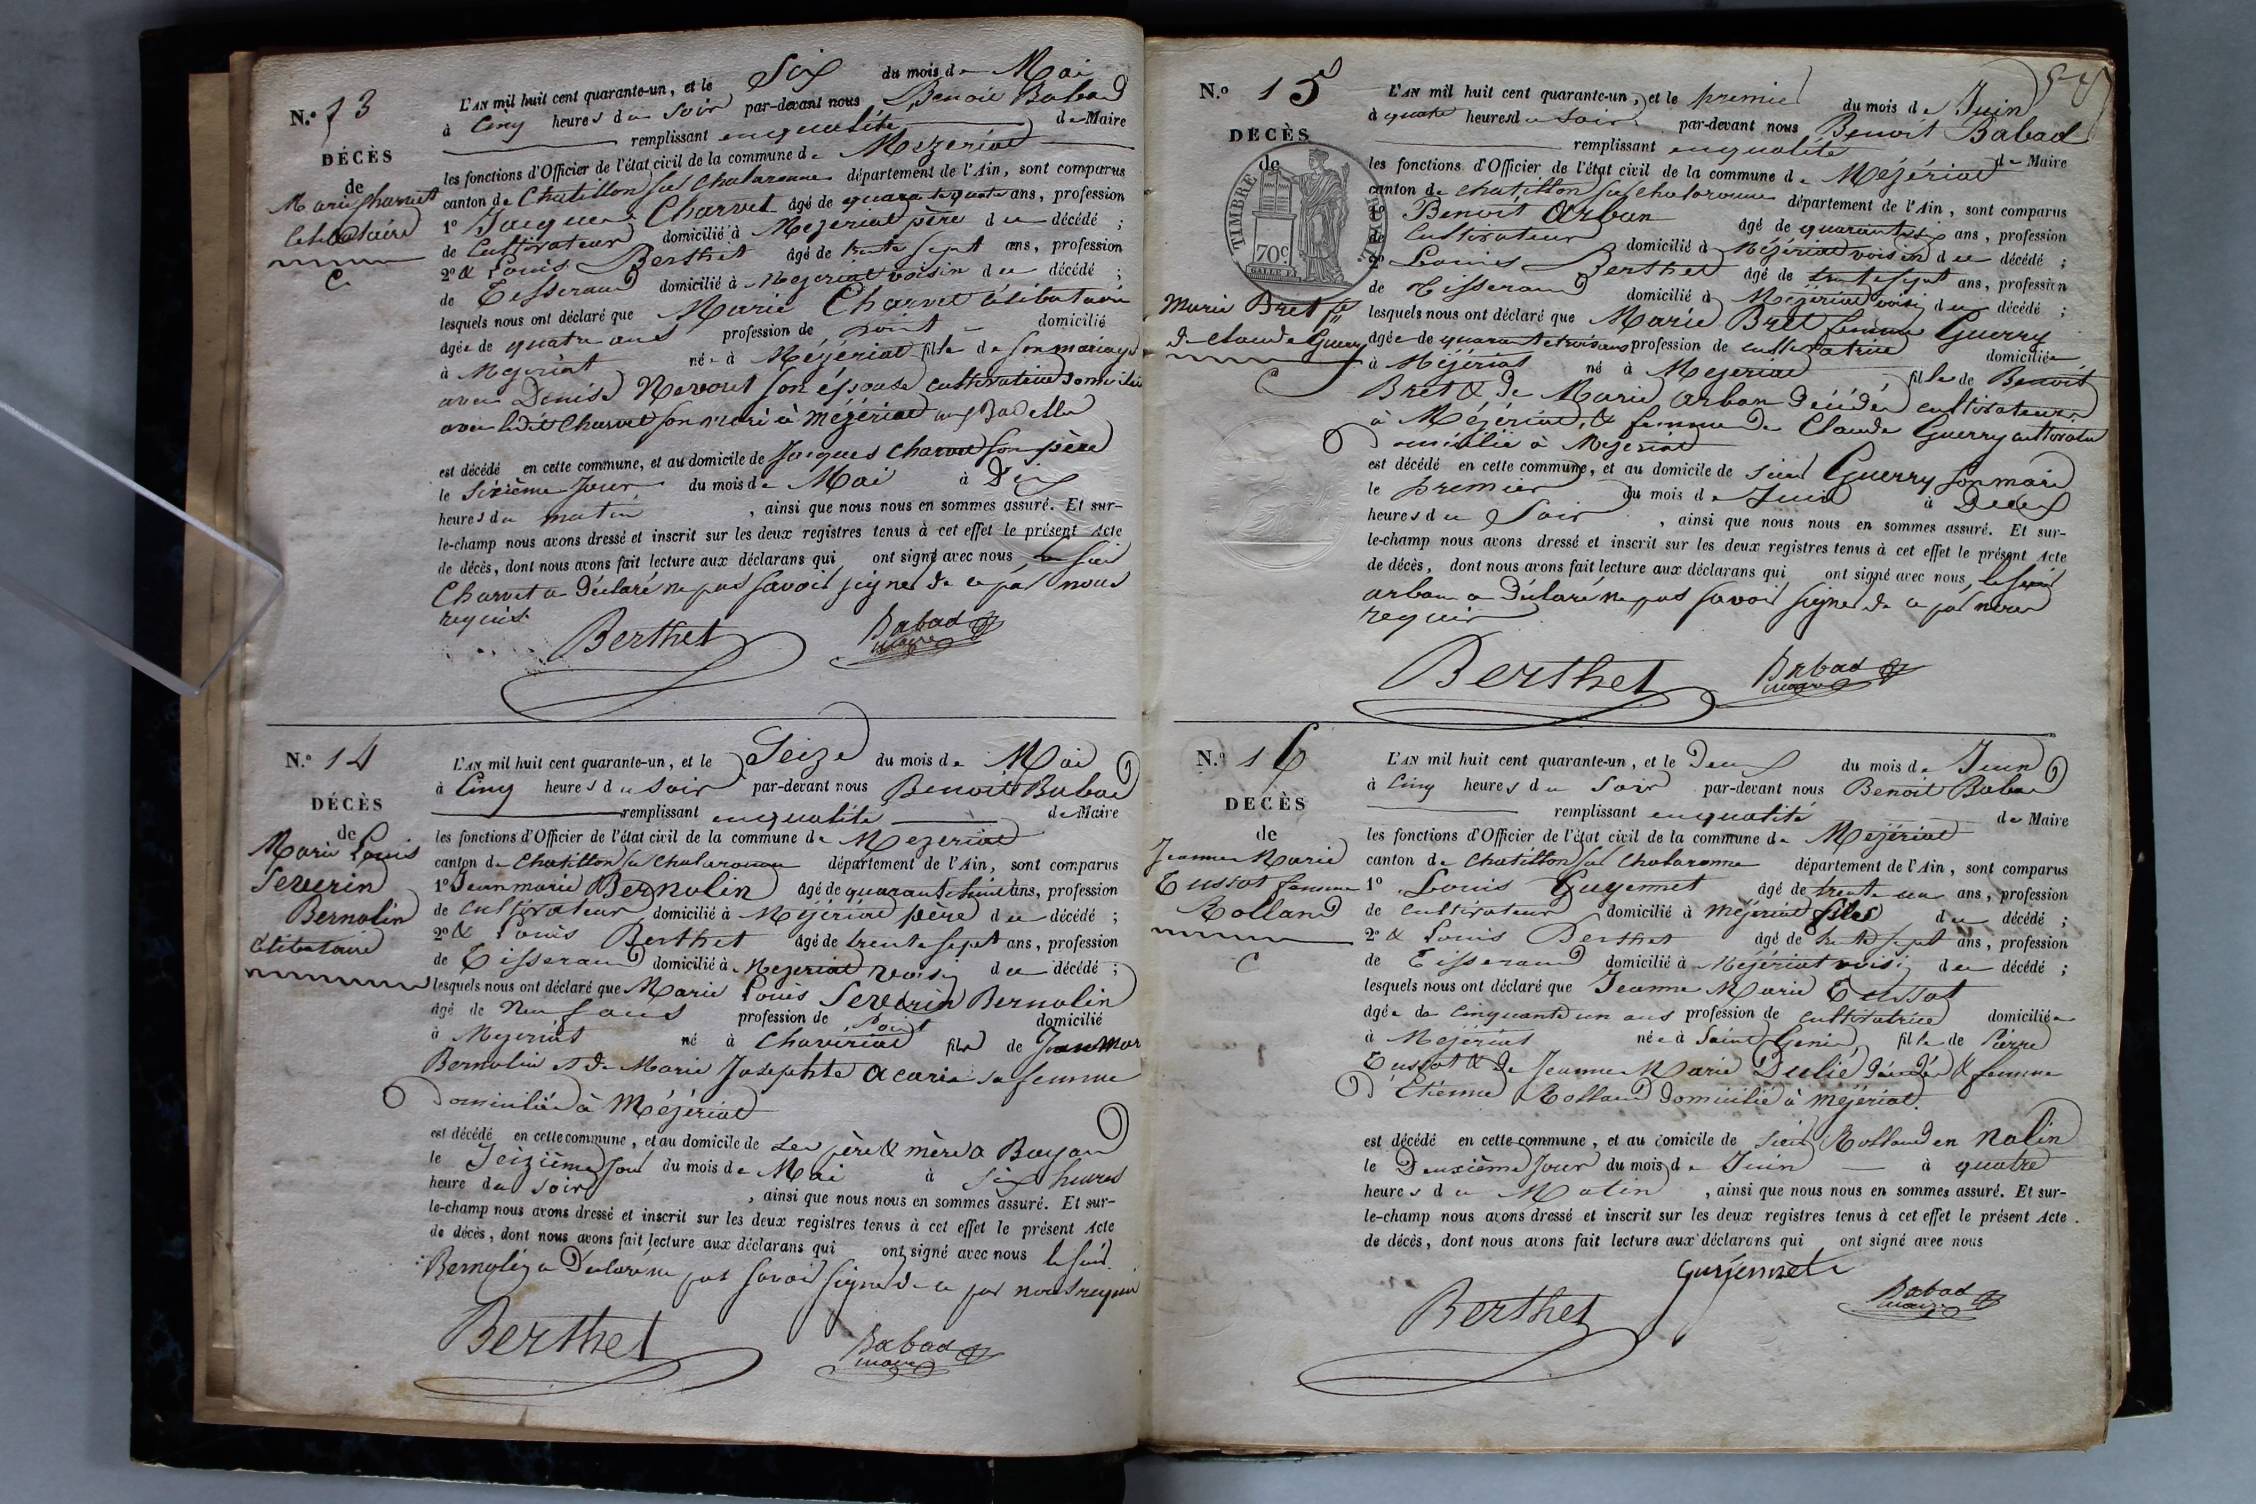 N.o 13
DÉCÈS
de
Marie Charvet
célibataire
C
L'AN mil huit cent quarante-un, et le Six du mois de Mai
à Cinq heures du soir par-devant nous Benoit Babad
remplissant en qualité de Maire
les fonctions d'Officier de l'état civil de la commune de Mezeriat
canton de Chatillon sur Chalaronne département de l'Ain, sont comparus
1o Jacques Charvet âgé de quarante quatre ans, profession
de Cultivateur domicilié à Mezeriat père du décédé ;
2o & Louis Berthet âgé de trente sept ans, profession
de Tisserand domicilié à Mezeriat voisin du décédé ;
lesquels nous ont déclaré que Marie Charvet célibataire
âgée de quatre ans profession de point domicilié
à Mezeriat née à Mézériat fille de son mariage
avec Denise Nevoret son épouse cultivatrice domiciliée
avec ledit Charvet son mari à Mézériat
est décédé en cette commune, et au domicile de Jacques Charvet son père
le sixième jour du mois de Mai à Dix
heures du matin, ainsi que nous nous en sommes assuré. Et sur-
le-champ nous avons dressé et inscrit sur les deux registres tenus à cet effet le présent Acte
de décès, dont nous avons fait lecture aux déclarans qui ont signé avec nous, le sieur
Charvet a déclaré ne pas savoir signer de ce par nous
requis
Berthet Babad
maire
N.o 14
DÉCÈS
de
Marie Louis
Severin
Bernolin
célibataire
L'AN mil huit cent quarante-un, et le Seize du mois de Mai
à Cinq heures du soir par-devant nous Benoit Babad
remplissant en qualité de Maire
les fonctions d'Officier de l'état civil de la commune de Mezeriat
canton de Chatillon sur Chalaronne département de l'Ain, sont comparus
1o Jean marie Bernolin âgé de quarante huit ans, profession
de cultivateur domicilié à Mézériat père du décédé ;
2o & Louis Berthet âgé de trente sept ans, profession
de Tisserand domicilié à Mezeriat voisin du décédé ;
lesquels nous ont déclaré que Marie Louis Severin Bernolin
âgé de neuf ans profession de Point domicilié
à Mezeriat né à Chaveriat fils de Jean Mar
Bernolin et de Marie Josephte Acarie sa femme
domiciliée à Mézériat
est décédé en cette commune, et au domicile de ses père & mère a Bayard
le Seizième jour du mois de Mai à six heures
heure du soir, ainsi que nous nous en sommes assuré. Et sur-
le-champ nous avons dressé et inscrit sur les deux registres tenus à cet effet le présent Acte
de décès, dont nous avons fait lecture aux déclarans qui ont signé avec nous le sieur
Bernolin a déclaré ne pas savoir signer de ce par nous requis
Berthet Babad
maire
N.o 15
DÉCÈS
de
TIMBRE ROYAL
70c
Marie Bret fe
de claude Guerry
C
L'AN mil huit cent quarante-un, et le premier du mois de Juin
à quatre heures du soir par-devant nous Benoit Babad
remplissant en qualité de Maire
les fonctions d'Officier de l'état civil de la commune de Mézériat
canton de chatillon sur chalaronne département de l'Ain, sont comparus
1o Benoit Arban âgé de quarante six ans, profession
de Cultivateur domicilié à Mézériat voisin du décédé ;
2o Louis Berthet âgé de trente sept ans, profession
de Tisserand domicilié à Mézériat voisin du décédé ;
lesquels nous ont déclaré que Marie Bret femme Guerry
âgée de quarante trois ans profession de cultivatrice domiciliée
à Mézériat né à Mezeriat fille de Benoit
Bret & de Marie Arban décédés cultivateurs
à Mézériat, & femme de Claude Guerry cultivateur
domicilié à Mezeriat
est décédé en cette commune, et au domicile de sieur Guerry son mari
le premier du mois de Juin à Deux
heures du Soir, ainsi que nous nous en sommes assuré. Et sur-
le-champ nous avons dressé et inscrit sur les deux registres tenus à cet effet le présent Acte
de décès, dont nous avons fait lecture aux déclarans qui ont signé avec nous, le sieur
arban a déclaré ne pas savoir signer de ce par nous
requis
Berthet Babad
maire
N.o 16
DÉCÈS
de
Jeanne Marie
Tussot femme
Rolland
C
L'AN mil huit cent quarante-un, et le Deux du mois de Juin
à Cinq heures du Soir par-devant nous Benoit Babad
remplissant en qualité de Maire
les fonctions d'Officier de l'état civil de la commune de Mézériat
canton de Chatillon sur Chalaronne département de l'Ain, sont comparus
1o Louis Guyennet âgé de trente un ans, profession
de cultivateur domicilié à Mézériat fils du décédé ;
2o & Louis Berthet âgé de trente sept ans, profession
de Tisserand domicilié à Mézériat voisin du décédé ;
lesquels nous ont déclaré que Jeanne Marie Tussot
âgée de cinquante un ans profession de cultivatrice domiciliée
à Mézériat née à Saint Genis fille de Pierre
Tussot & de Jeanne Marie Dulié décédés & femme
d'Etienne Rolland domicilié à Mézériat.
est décédé en cette commune, et au domicile de sieur Rolland en Nalin
le Deuxième Jour du mois de Juin à quatre
heures du Matin, ainsi que nous nous en sommes assuré. Et sur-
le-champ nous avons dressé et inscrit sur les deux registres tenus à cet effet le présent Acte.
de décès, dont nous avons fait lecture aux déclarans qui ont signé avec nous
Guyennet
Berthet Babad
maire